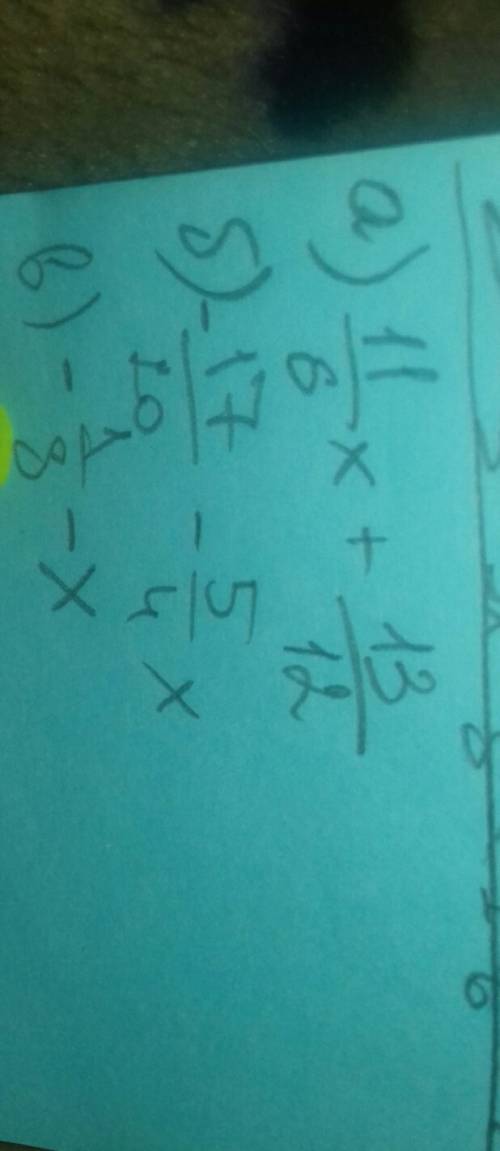 а) 11/6 x + 13/12
б) - 17/20 - 5/4 x
в) - 1/8 - x